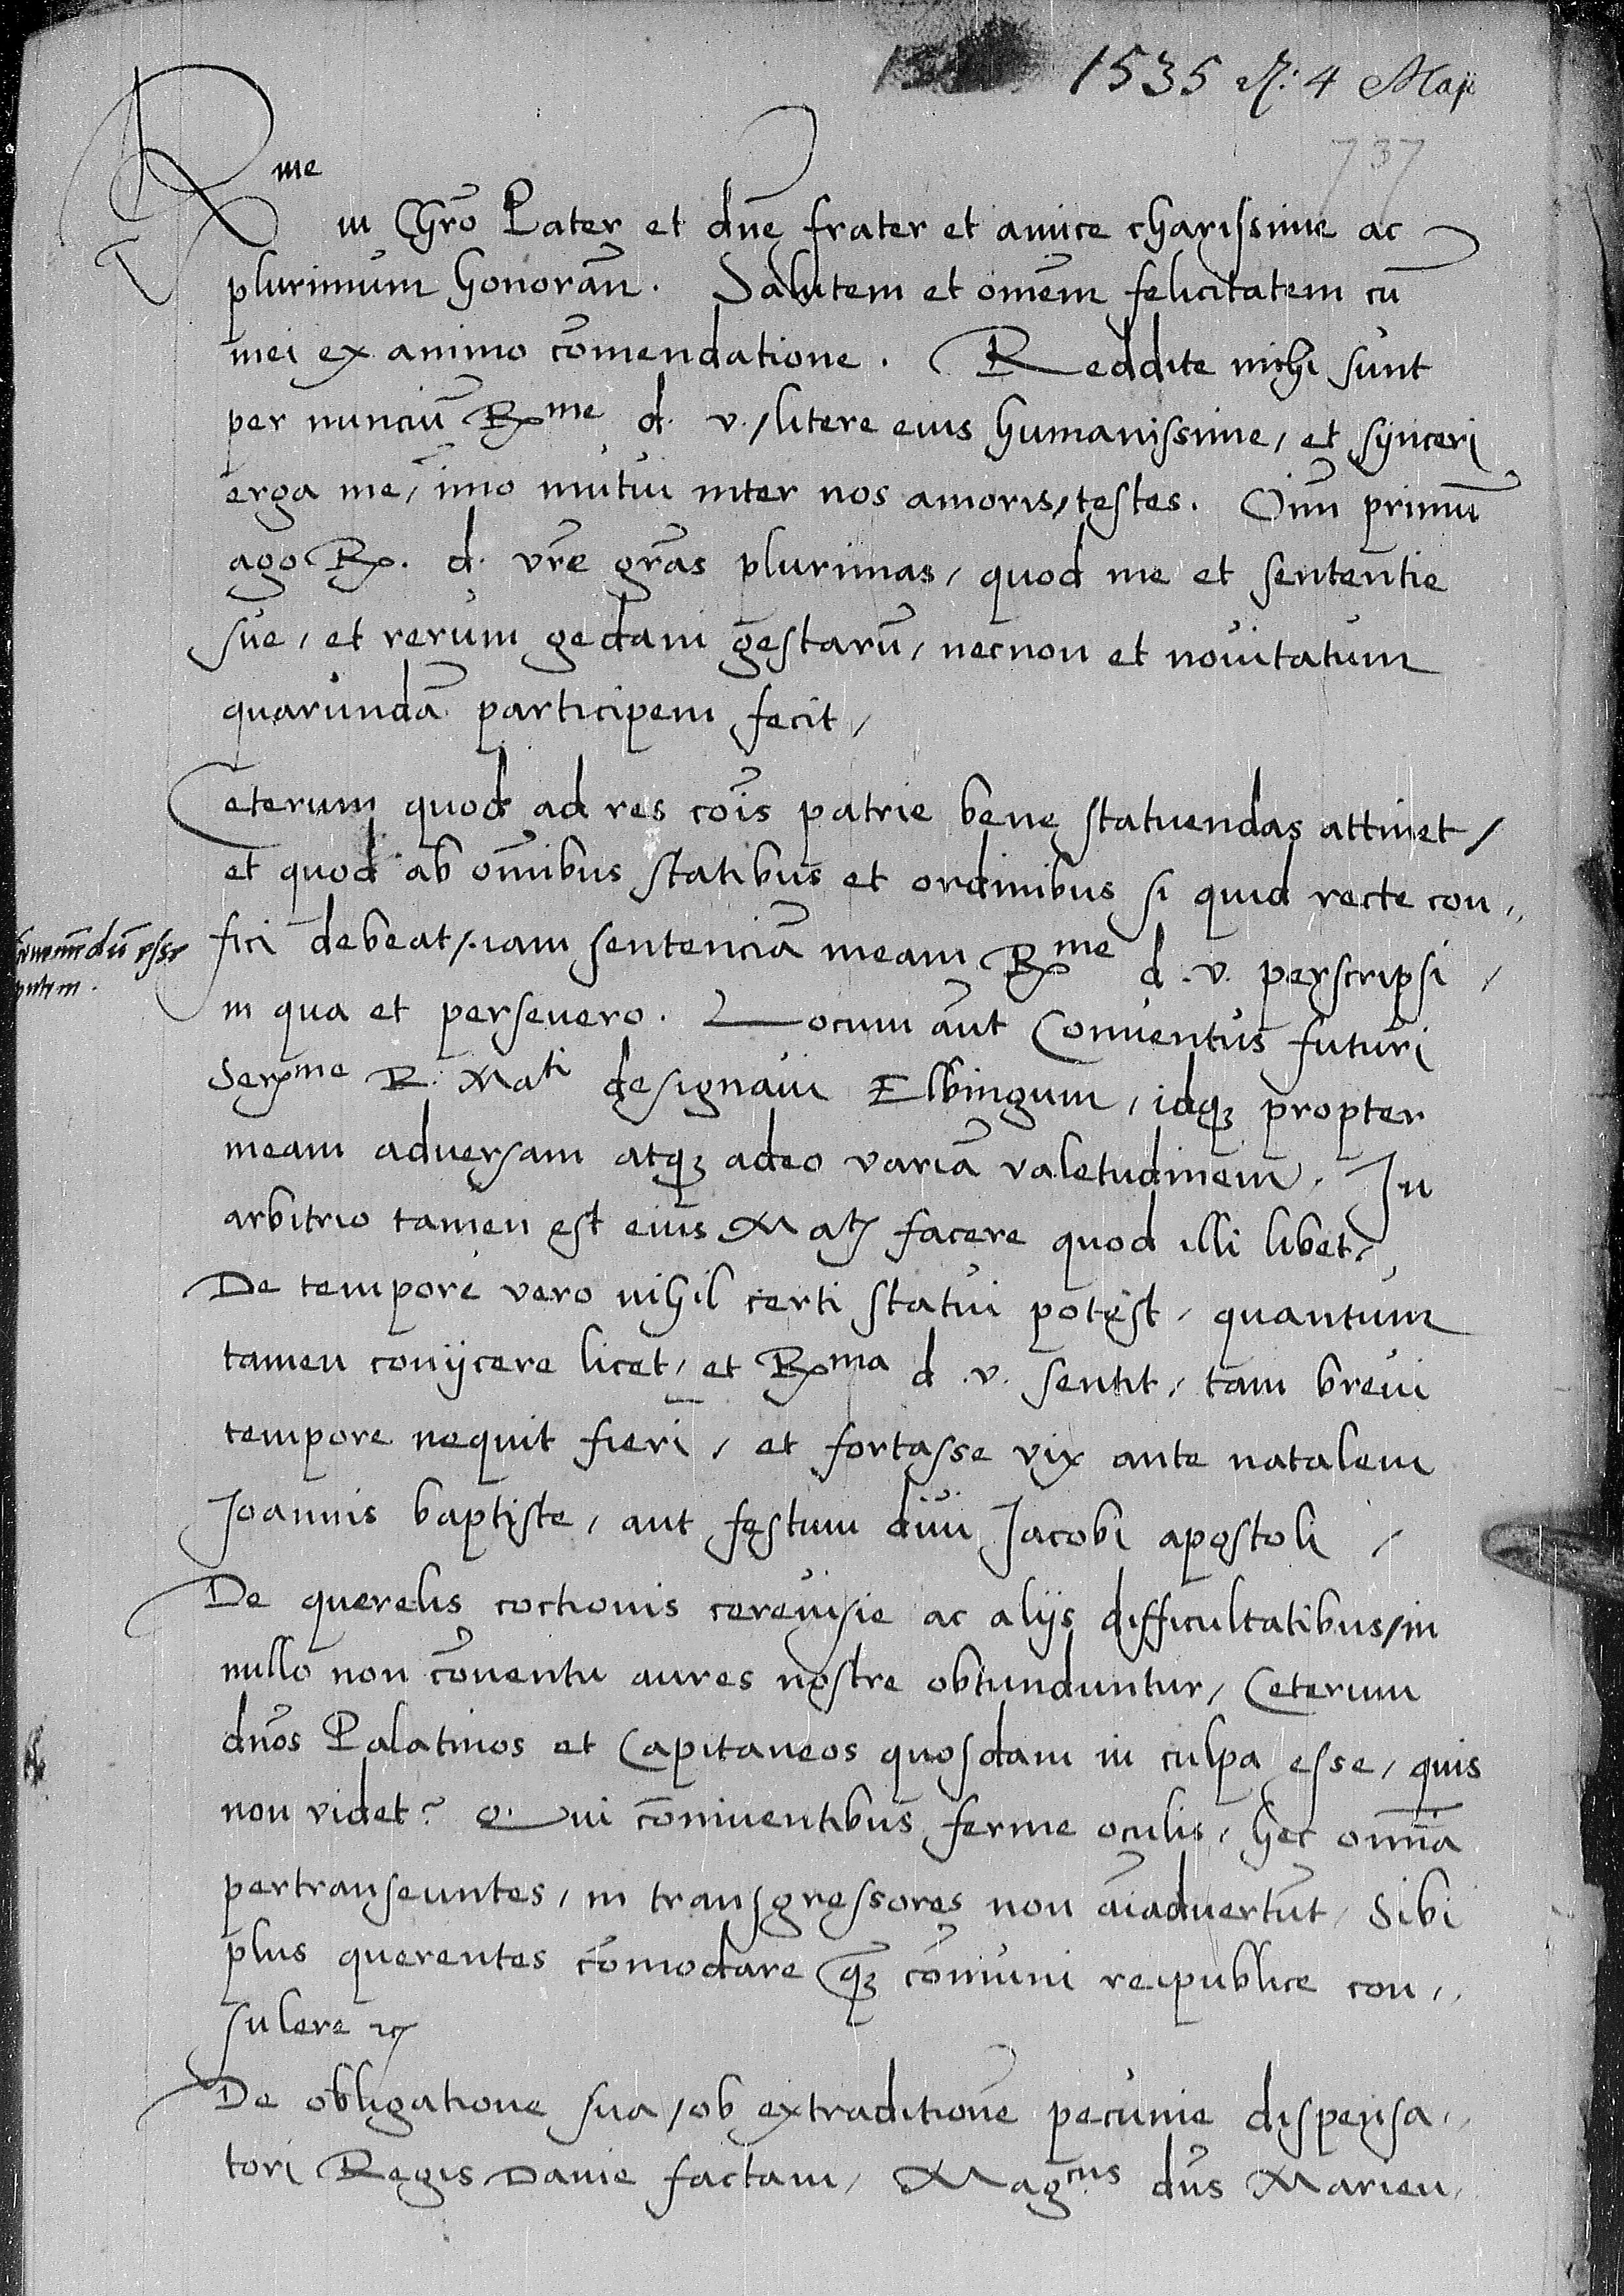 1535 d. 4 Maji
737
Rme
in Chro Pater et dne frater et amice charissime ac
plurimum honoran. Salutem et omem felicitatem cu
mei ex animo comendatione. Reddite mihi sunt
per nunciu Rme d. v. / litere eius humanissime, et synceri
erga me, imo mutui inter nos amoris, testes. Oim primu
ago R. d. vre gras plurimas, quod me et sententie
sue, et rerum gedani gestaru, necnon et novitatum
quarunda participem fecit,
Ceterum quod ad res cois patrie bene statuendas attinet,
et quod ab omibus statibus et ordinibus si quid recte con,,
fici debeat, iam sentencia meam Rme d. v. perscripsi,
esse
putem.
in qua et persevero. Locum aut Conventus futuri
Serme R. Mati designavi Elbingum, idq3 propter
meam adversam atq3 adeo varia valetudinem. In
arbitrio tamen est eius Matis facere quod illi libet,
De tempore vero nihil certi statui potest, quantum
tamen conijcere licet, et Rma d. v. sentit, tam brevi
tempore nequit fieri, et fortasse vix ante natalem
Joannis baptiste, aut festum divi Jacobi apostoli,
De querelis coctionis cerevisie ac alijs difficultatibus, in
nullo non coventu aures nostre obtunduntur, Ceterum
dnos Palatinos et Capitaneos quosdam in culpa esse, quis
non videt? Qui conniventibus ferme oculis, hec omnia
pertranseuntes, in transgressores non aiadvertut, Sibi
plus querentes comodare q3 comuni reipublice con,,
sulere etc
De obligatione sua, ob extraditione pecunie dispensa,,
tori Regis Danie factam, Magcus dns Marien,